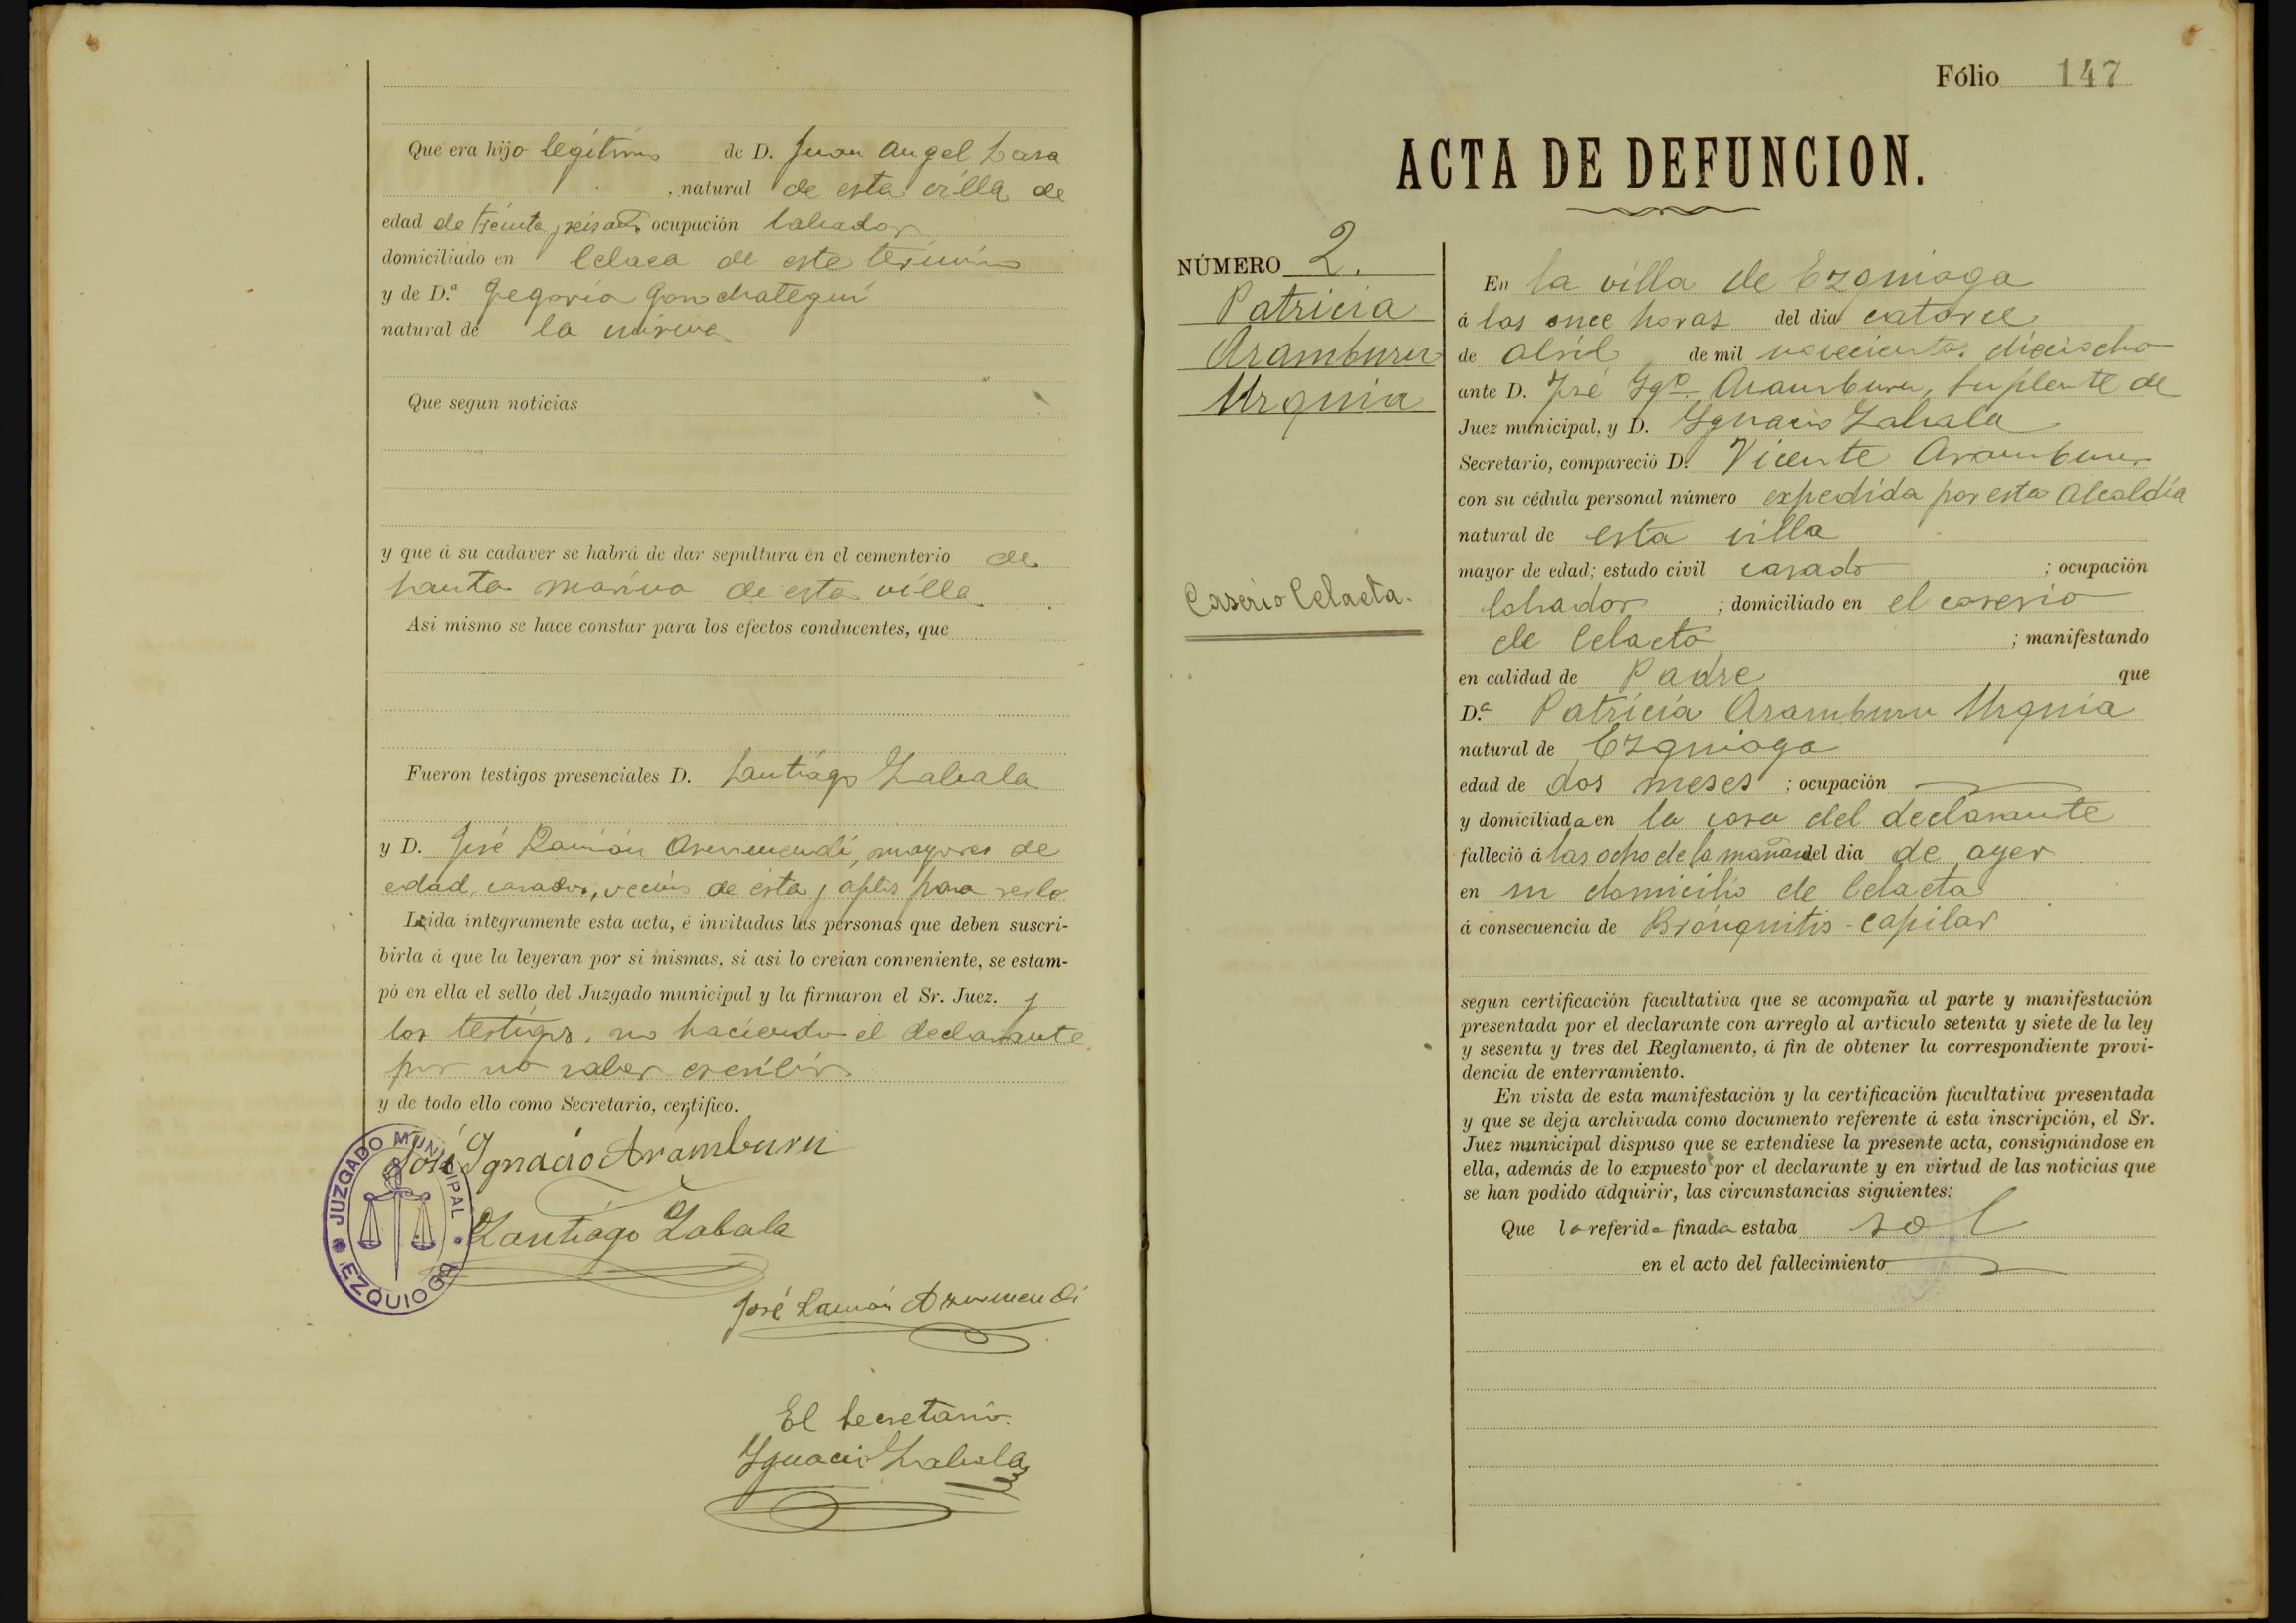 Que era hijo legítimo de D. Juan Angel Lasa
, natural de esta villa de
edad de treinta y seis años ocupación labrador
domiciliado en Celaeta de este término
y de D.ª Gregoria Goñochategui
natural de la misma
Que segun noticias
y que á su cadaver se habrá de dar sepultura en el cementerio de
Santa Marina de esta villa.
Asi mismo se hace constar para los efectos conducentes, que
Fueron testigos presenciales D. Santiágo Zabala
y D. José Ramón Azurmendi, mayores de
edad, casados, vecinos de ésta y aptos para serlo
Leida integramente esta acta, é invitadas las personas que deben suscri-
birla á que la leyeran por si mismas, si asi lo creian conveniente, se estam-
pó en ella el sello del Juzgado municipal y la firmaron el Sr. Juez. y
los testigos, no haciendo el declarante
por no saber escribir
y de todo ello como Secretario, certifico.
José Ygnacio Aramburu
JUZGADO MUNICIPAL
EZQUIOGA
Santiágo Zabala
José Ramón Azurmendi
El Secretario.
Ygnacio Zabala
Fólio 147
ACTA DE DEFUNCION.
NÚMERO 2.
Patricia
Aramburu
Urquia
Caserio Celaeta.
En la villa de Ezquioga
á las once horas del dia catorce
de Abril de mil novecientos dieciocho
ante D. José Ygº Aramburu, Suplente de
Juez municipal, y D. Ygnacio Zabala
Secretario, compareció D. Vicente Aramburu
con su cédula personal número expedida por esta Alcaldía
natural de esta villa
mayor de edad; estado civil casado ; ocupación
labrador ; domiciliado en el caserio
de Celaeta ; manifestando
en calidad de Padre que
D.ª Patricia Aramburu Urquia
natural de Ezquioga
edad de dos meses ; ocupación
y domiciliada en la casa del declarante
falleció á las ocho de la mañana del dia de ayer
en su domicilio de Celaeta
á consecuencia de Brónquitis-capilar
segun certificación facultativa que se acompaña al parte y manifestación
presentada por el declarante con arreglo al articulo setenta y siete de la ley
y sesenta y tres del Reglamento, á fin de obtener la correspondiente provi-
dencia de enterramiento.
En vista de esta manifestación y la certificación facultativa presentada
y que se deja archivada como documento referente á esta inscripción, el Sr.
Juez municipal dispuso que se extendiese la presente acta, consignándose en
ella, además de lo expuesto por el declarante y en virtud de las noticias que
se han podido adquirir, las circunstancias siguientes:
Que la referida finada estaba sol
en el acto del fallecimiento